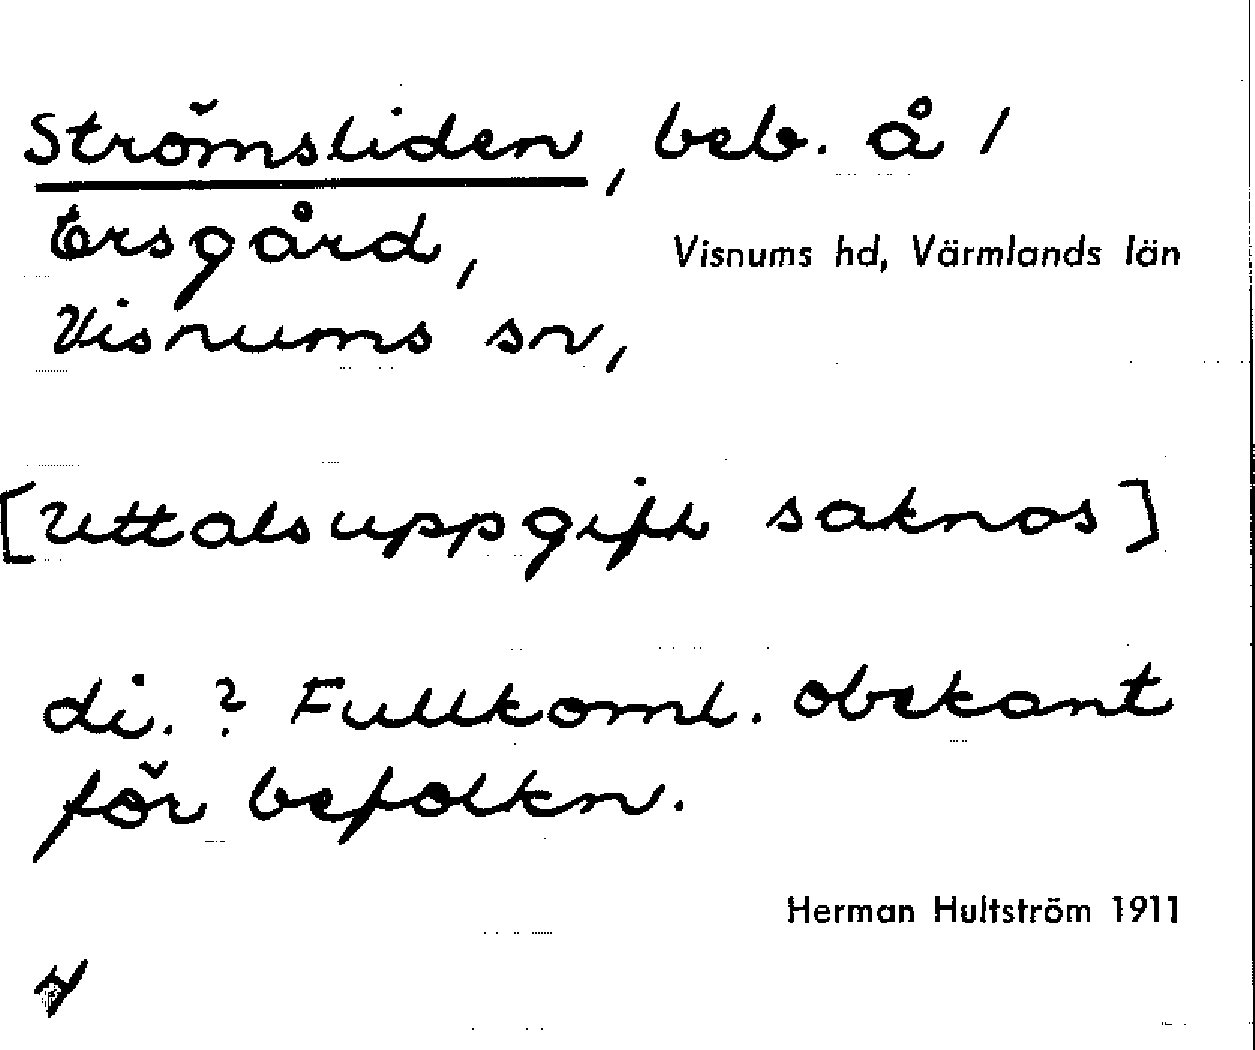 Strömsliden, beb. å 1
Ersgård,
Visnums hd, Värmlands län
Visnums sn,
[Uttalsuppgift saknas]
di. ? Fullkoml. obekant
för befolkn.
Herman Hultström 1911